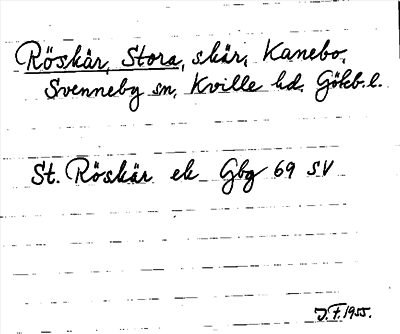 Röskär, Stora, skär, Kanebo,
Svenneby sn, Kville hd. Götb. l.
St. Röskär ek Gbg 69 SV
J.F. 1955.